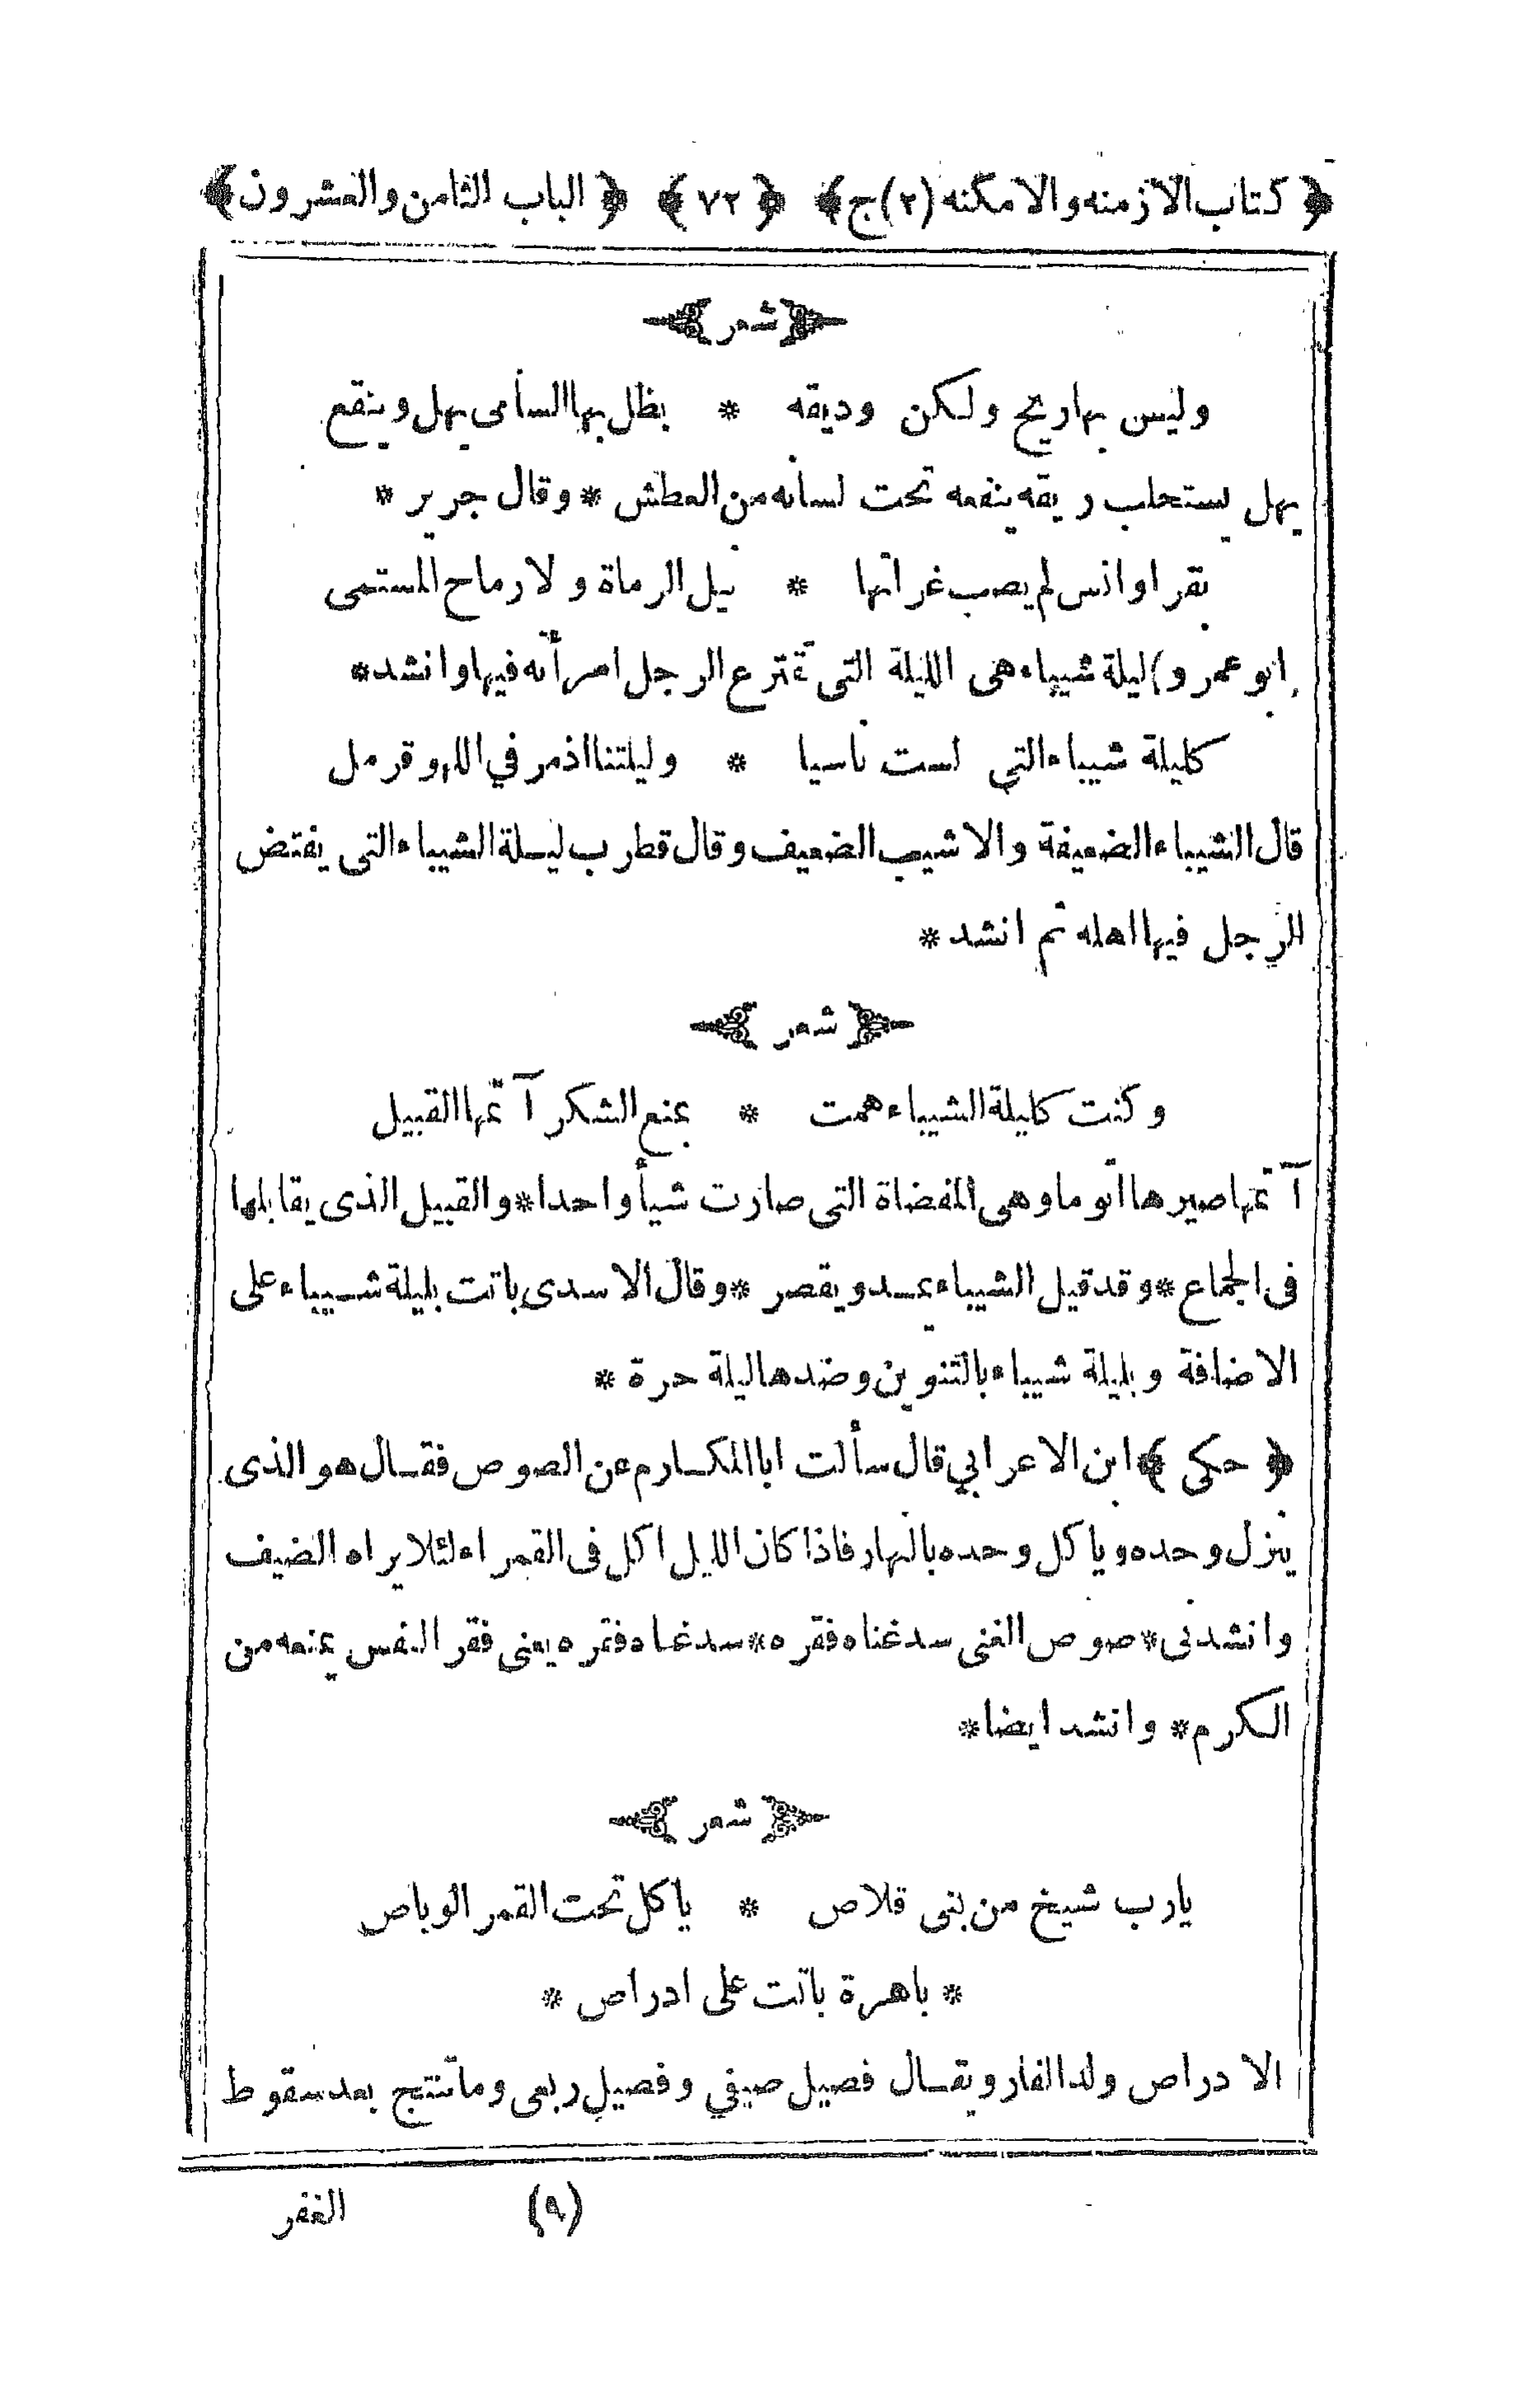 ﴿ كتاب الازمنه والامكنه (٢) ج ﴾ ﴿ ٧٢ ﴾ ﴿ الباب الثامن والعشرون ﴾
﴿ شعر ﴾
وليس بها ريح ولكن وديقه * يظل بها السأمى يهل وينقع
يهل يستحلب ريقه ينفعه تحت لسانه من العطش * وقال جرير *
بقر اوانس لم يصب غراتها * نبل الرماة ولا رماح المستمى
ابو عمرو) ليلة شيباء هى الليلة التى تقترع الرجل امرأته فيها وانشد *
كليلة شيباء التي لست ناسيا * وليلتنا اذمر في اللهو قرمل
قال الشيباء الضعيفة والاشيب الضعيف وقال قطرب ليلة الشيباء التى يفتض
الرجل فيها اهله ثم انشد *
﴿ شعر ﴾
وكنت كليلة الشيباء همت * بمنع الشكر آتمها القبيل
آتمها صيرها اتوما وهى المفضاة التى صارت شيأ واحدا * والقبيل الذى يقابلها
فى الجماع * وقد قيل الشيباء يمد ويقصر * وقال الاسدى باتت بليلة شيباء على
الاضافة وبليلة شيباء بالتنوين وضدها ليلة حرة *
﴿ حكى ﴾ ابن الاعرابي قال سألت ابا المكارم عن الصوص فقال هو الذى
ينزل وحده وياكل وحده بالنهار فاذا كان الليل اكل فى القمراء لئلا يراه الضيف
وانشدنى * صوص الغنى سد غناه فقره * سد غناه فقره يعنى فقر النفس يمنعه من
الكرم * وانشد ايضا *
﴿ شعر ﴾
يارب شيخ من بنى قلاص * ياكل تحت القمر الوباص
* باهرة باتت على ادراص *
الادراص ولد الفار ويقال فصيل صيفي وفصيل ربعى وماتنتج بعد سقوط
(٩) الغفر